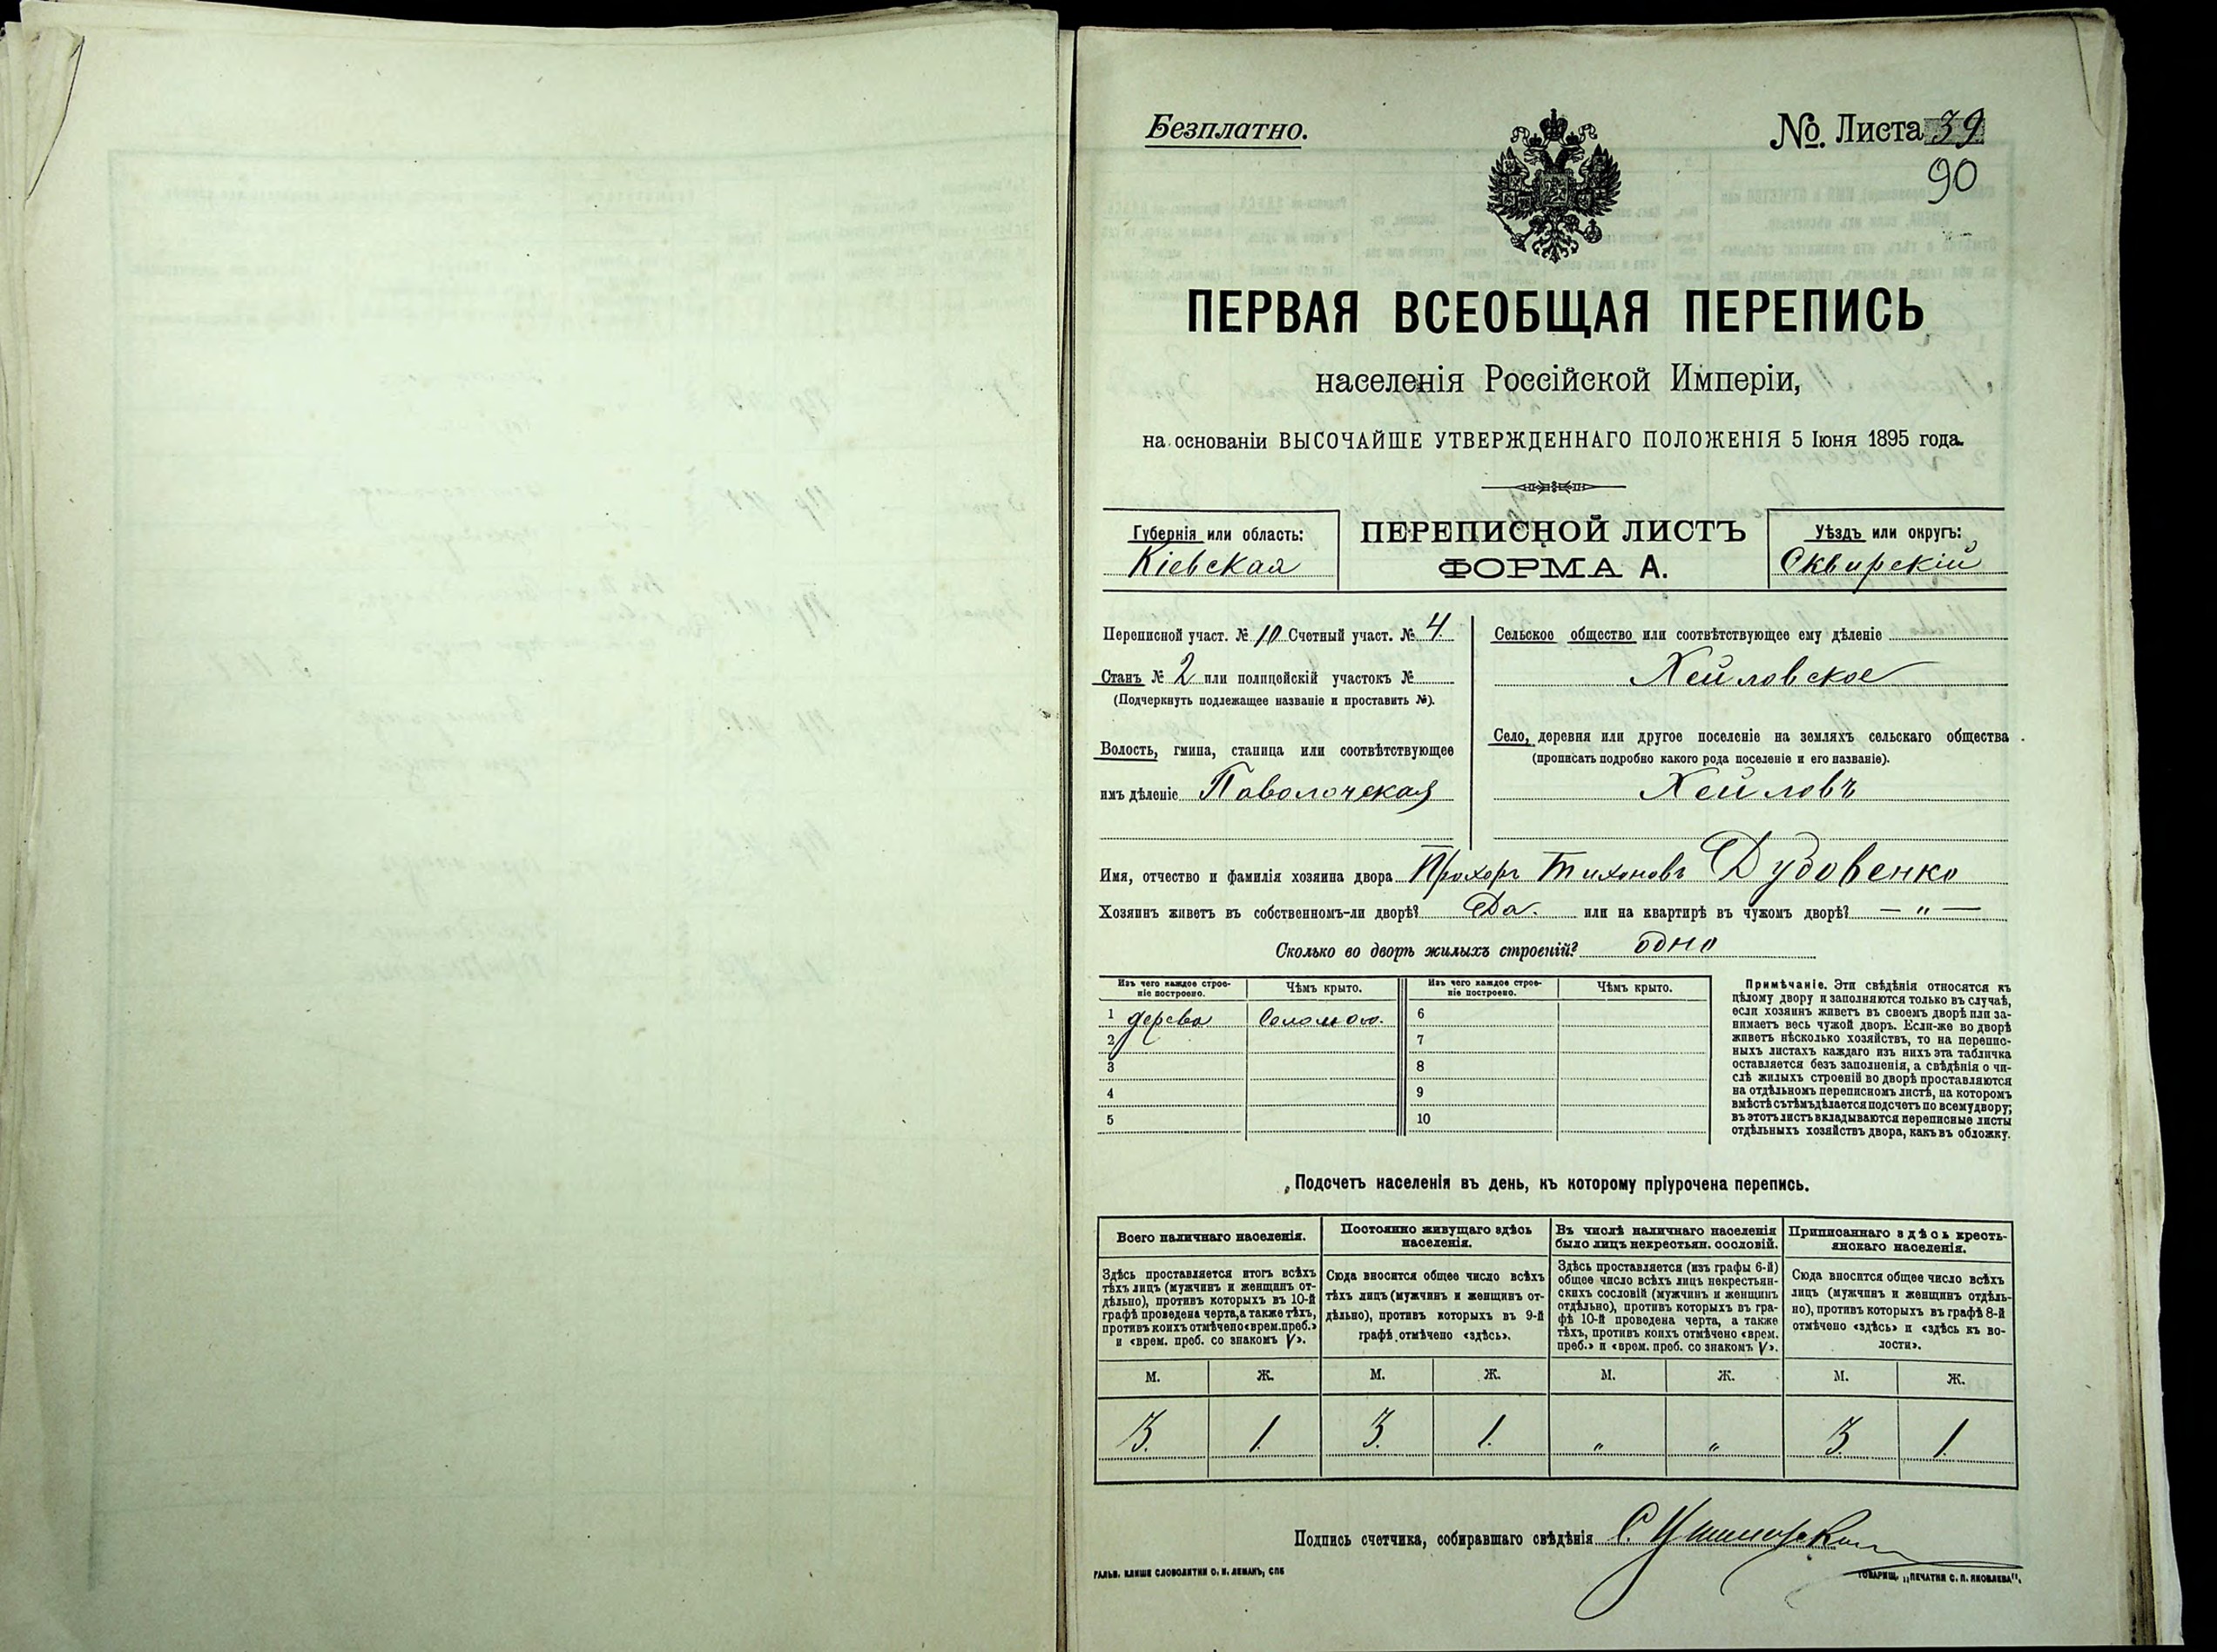 Безплатно.
№. Листа 39.
90
ПЕРВАЯ ВСЕОБЩАЯ ПЕРЕПИСЬ
населенія Россійской Имперіи,
на основаніи ВЫСОЧАЙШЕ УТВЕРЖДЕННАГО ПОЛОЖЕНІЯ 5 Іюня 1895 года.
Губернія или область:
Кіевская
ПЕРЕПИСНОЙ ЛИСТЪ
ФОРМА А.
Уѣздъ или округъ:
Сквирскій
Переписной участ. № 10 Счетный участ. № 4
Станъ № 2 или полицейскій участокъ №
(Подчеркнуть подлежащее названіе и проставить №).
Волость, гмина, станица или соотвѣтствующее
имъ дѣленіе Паволочская
Сельское общество или соотвѣтствующее ему дѣленіе
Хейловское
Село, деревня или другое поселеніе на земляхъ сельскаго общества
(прописать подробно какого рода поселеніе и его названіе).
Хейловъ
Имя, отчество и фамилія хозяина двора Прохоръ Тихоновъ Дудовенко
Хозяинъ живетъ въ собственномъ-ли дворѣ? Да. или на квартирѣ въ чужомъ дворѣ? — „ —
Сколько во дворѣ жилыхъ строеній? одно
Изъ чего каждое строе-
ніе построено.
Чѣмъ крыто.
Изъ чего каждое строе-
ніе построено.
Чѣмъ крыто.
1 дерева Соломою. 6
2 7
3 8
4 9
5 10
Примѣчаніе. Эти свѣдѣнія относятся къ
цѣлому двору и заполняются только въ случаѣ,
если хозяинъ живетъ въ своемъ дворѣ или за-
нимаетъ весь чужой дворъ. Если-же во дворѣ
живетъ нѣсколько хозяйствъ, то на перепис-
ныхъ листахъ каждаго изъ нихъ эта табличка
оставляется безъ заполненія, а свѣдѣнія о чи-
слѣ жилыхъ строеній во дворѣ проставляются
на отдѣльномъ переписномъ листѣ, на которомъ
вмѣстѣ съ тѣмъ дѣлается подсчетъ по всему двору;
въ этотъ листъ вкладываются переписные листы
отдѣльныхъ хозяйствъ двора, какъ въ обложку.
Подсчетъ населенія въ день, къ которому пріурочена перепись.
Всего наличнаго населенія.
Здѣсь проставляется итогъ всѣхъ
тѣхъ лицъ (мужчинъ и женщинъ от-
дѣльно), противъ которыхъ въ 10-й
графѣ проведена черта, а также тѣхъ,
противъ коихъ отмѣчено «врем. преб.»
и «врем. преб. со знакомъ V».
Постоянно живущаго здѣсь
населенія.
Сюда вносится общее число всѣхъ
тѣхъ лицъ (мужчинъ и женщинъ от-
дѣльно), противъ которыхъ въ 9-й
графѣ отмѣчено «здѣсь».
Въ числѣ наличнаго населенія
было лицъ некрестьян. сословій.
Здѣсь проставляется (изъ графы 6-й)
общее число всѣхъ лицъ некрестьян-
скихъ сословій (мужчинъ и женщинъ
отдѣльно), противъ которыхъ въ гра-
фѣ 10-й проведена черта, а также
тѣхъ, противъ коихъ отмѣчено «врем.
преб.» и «врем. преб. со знакомъ V».
Приписаннаго здѣсь кресть-
янскаго населенія.
Сюда вносится общее число всѣхъ
лицъ (мужчинъ и женщинъ отдѣль-
но), противъ которыхъ въ графѣ 8-й
отмѣчено «здѣсь» и «здѣсь къ во-
лости».
М. Ж. М. Ж. М. Ж. М. Ж.
3. 1. 3. 1. „ „ 3. 1.
Подпись счетчика, собиравшаго свѣдѣнія С.
ГАЛЬВ. КЛИШЕ СЛОВОЛИТНИ О. И. ЛЕМАНЪ, СПБ
ТОВАРИЩ. „ПЕЧАТНЯ С. П. ЯКОВЛЕВА".